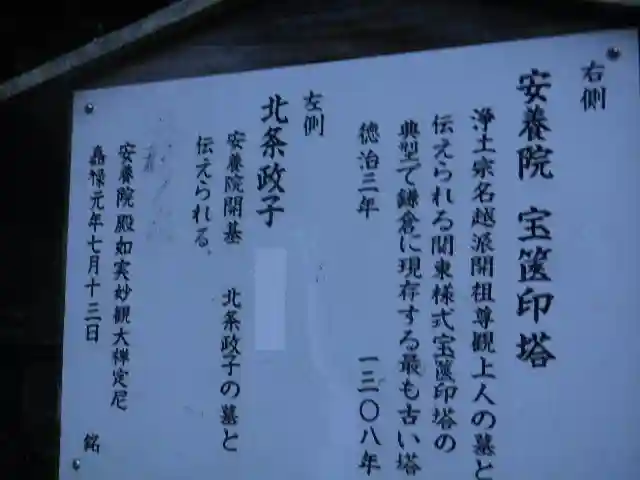 右側
安養院 宝篋印塔
浄土宗名越派開祖尊観上人の墓と
伝えられる関東様式宝篋印塔の
典型で鎌倉に現存する最も古い塔
徳治三年 一三〇八年
左側
北条政子
安養院開基 北条政子の墓と
伝えられる、
安養院殿如実妙観大禅定尼
嘉禄元年七月十三日 銘